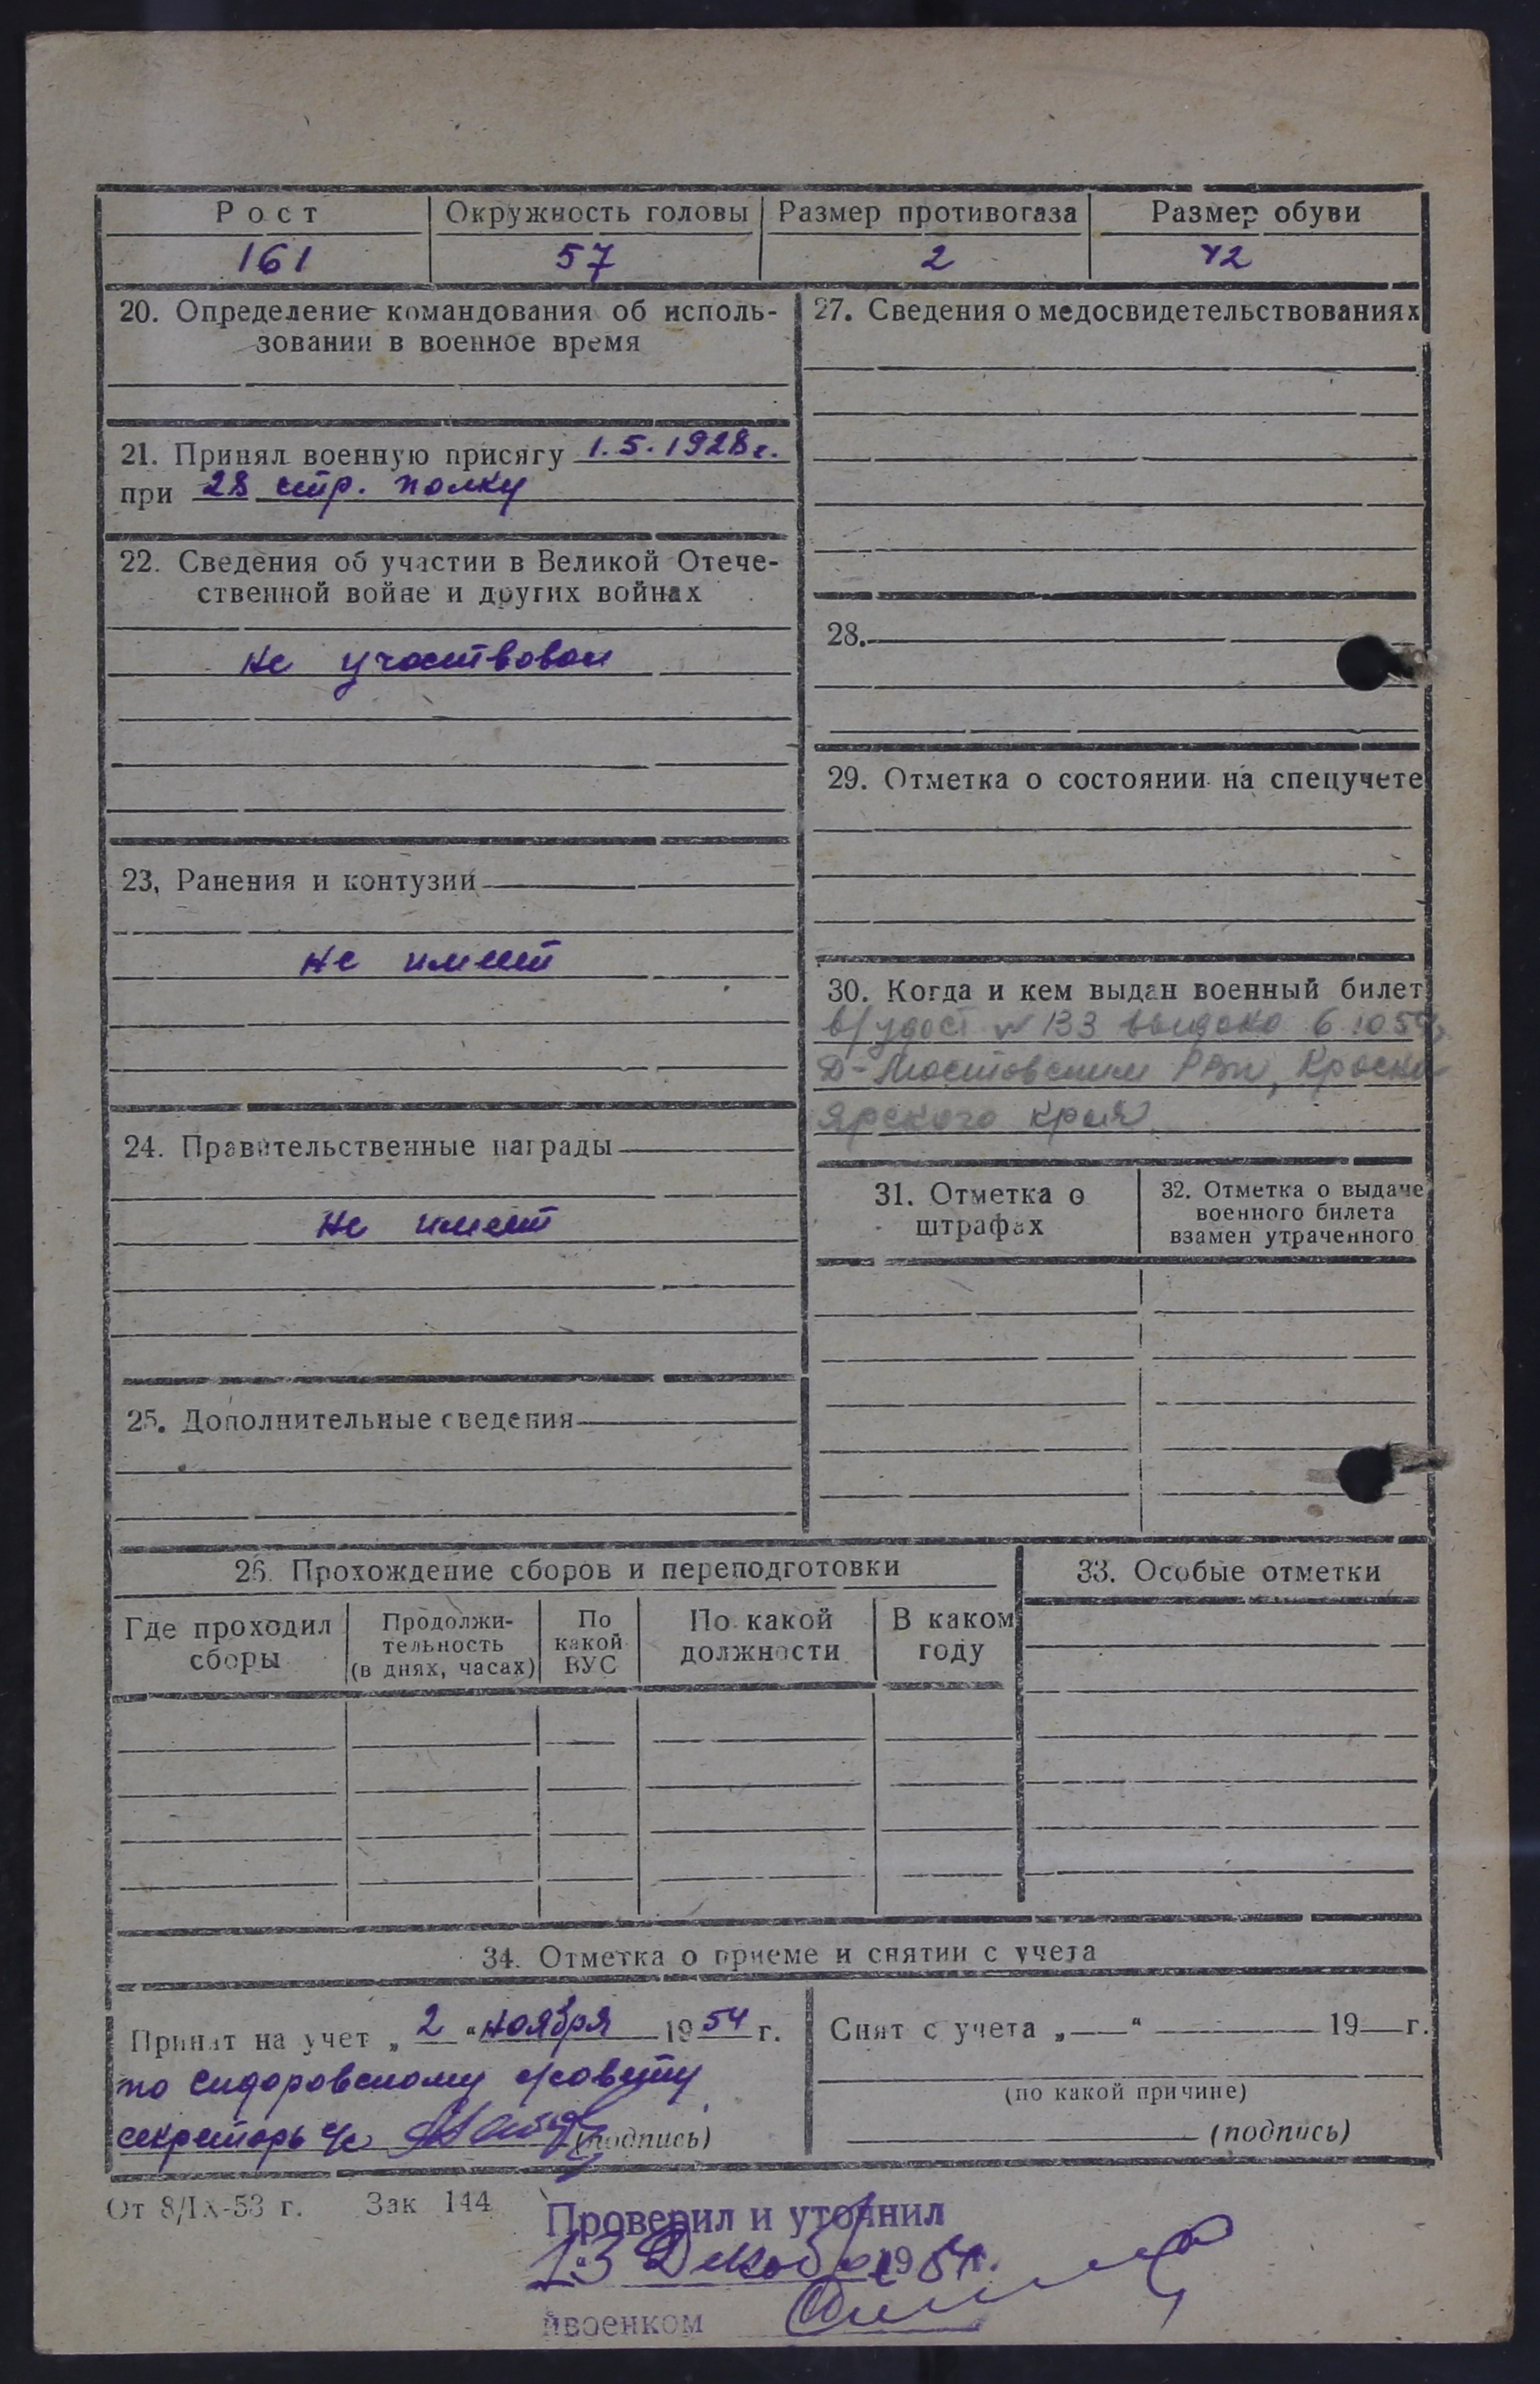 Рост
Окружность головы
Размер противогаза
Размер обуви
161
57
2
42
20. Определение командования об исполь-
зовании в военное время
21. Принял военную присягу 1.5.1928 г.
при 28 стр. полку
22. Сведения об участии в Великой Отече-
ственной войне и других войнах
не участвовал
23. Ранения и контузии
не имеет
24. Правительственные награды
не имеет
25. Дополнительные сведения
27. Сведения о медосвидетельствованиях
28.
29. Отметка о состоянии на спецучете
30. Когда и кем выдан военный билет
в/удост № 133 выдано 6 10 54
Д-Мостовским РВК, Красно
ярского края
31. Отметка о
штрафах
32. Отметка о выдаче
военного билета
взамен утраченного
26. Прохождение сборов и переподготовки
Где проходил
сборы
Продолжи-
тельность
(в днях, часах)
По
какой
ВУС
По какой
должности
В каком
году
33. Особые отметки
34. Отметка о приеме и снятии с учета
Принят на учет „2“ ноября 1954 г.
по Сидоровскому с/совету
секретарь с/с (подпись)
Снят с учета „ “ 19 г.
(по какой причине)
(подпись)
От 8/IX-53 г. Зак 144
Проверил и уточнил
13 Декабря 1954 г.
йвоенком